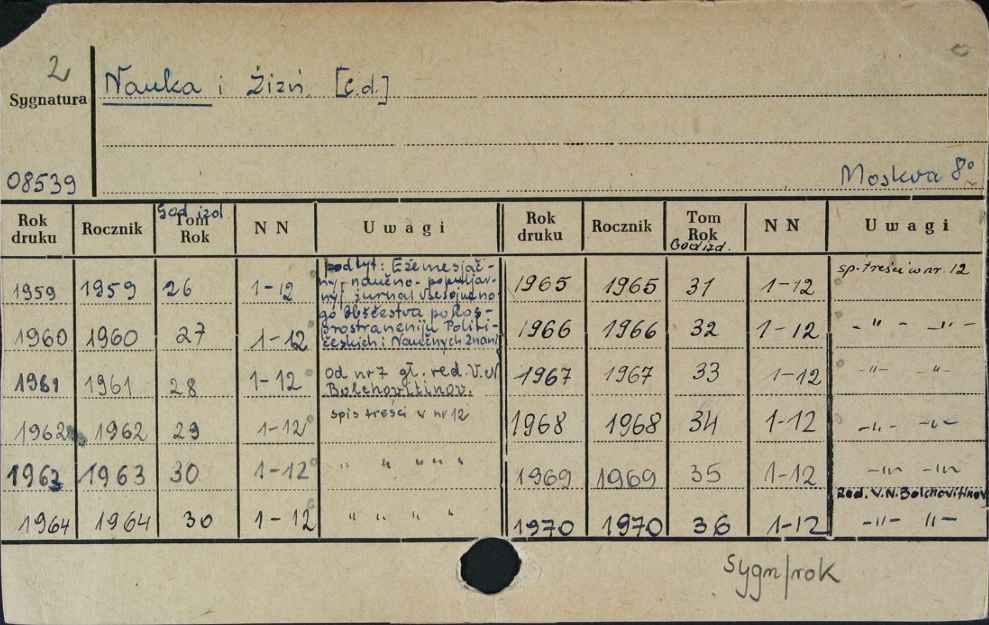 2
Nauka i Žizń. [c.d.]
Sygnatura
08539
Moskva 8°
Rok druku Rocznik God izd. Tom Rok NN Uwagi Rok druku Rocznik Tom Rok God izd. NN Uwagi
1959 1959 26 1-12
podtyt: Ežemesjač-
nyj naučno-populjar-
nyj žurnal Vsesojuzno-
go Obščestva po Ros-
prostraneniju Politi-
českich i Naučnych Znanij
1960 1960 27 1-12
1961 1961 28 1-12 od nr 7 gł. red. V.N
Bolchovitinov.
1962 1962 29 1-12 spis treści w nr 12
1963 1963 30 1-12 " " " " "
1964 1964 30 1-12 " " " "
1965 1965 31 1-12 sp. treści w nr. 12
1966 1966 32 1-12 -"- -"-
1967 1967 33 1-12 -"- -"-
1968 1968 34 1-12 -"- -"-
1969 1969 35 1-12 -"- -"-
Red. V.N. Bolchovitinov
1970 1970 36 1-12 -"- "-
Sygn/rok